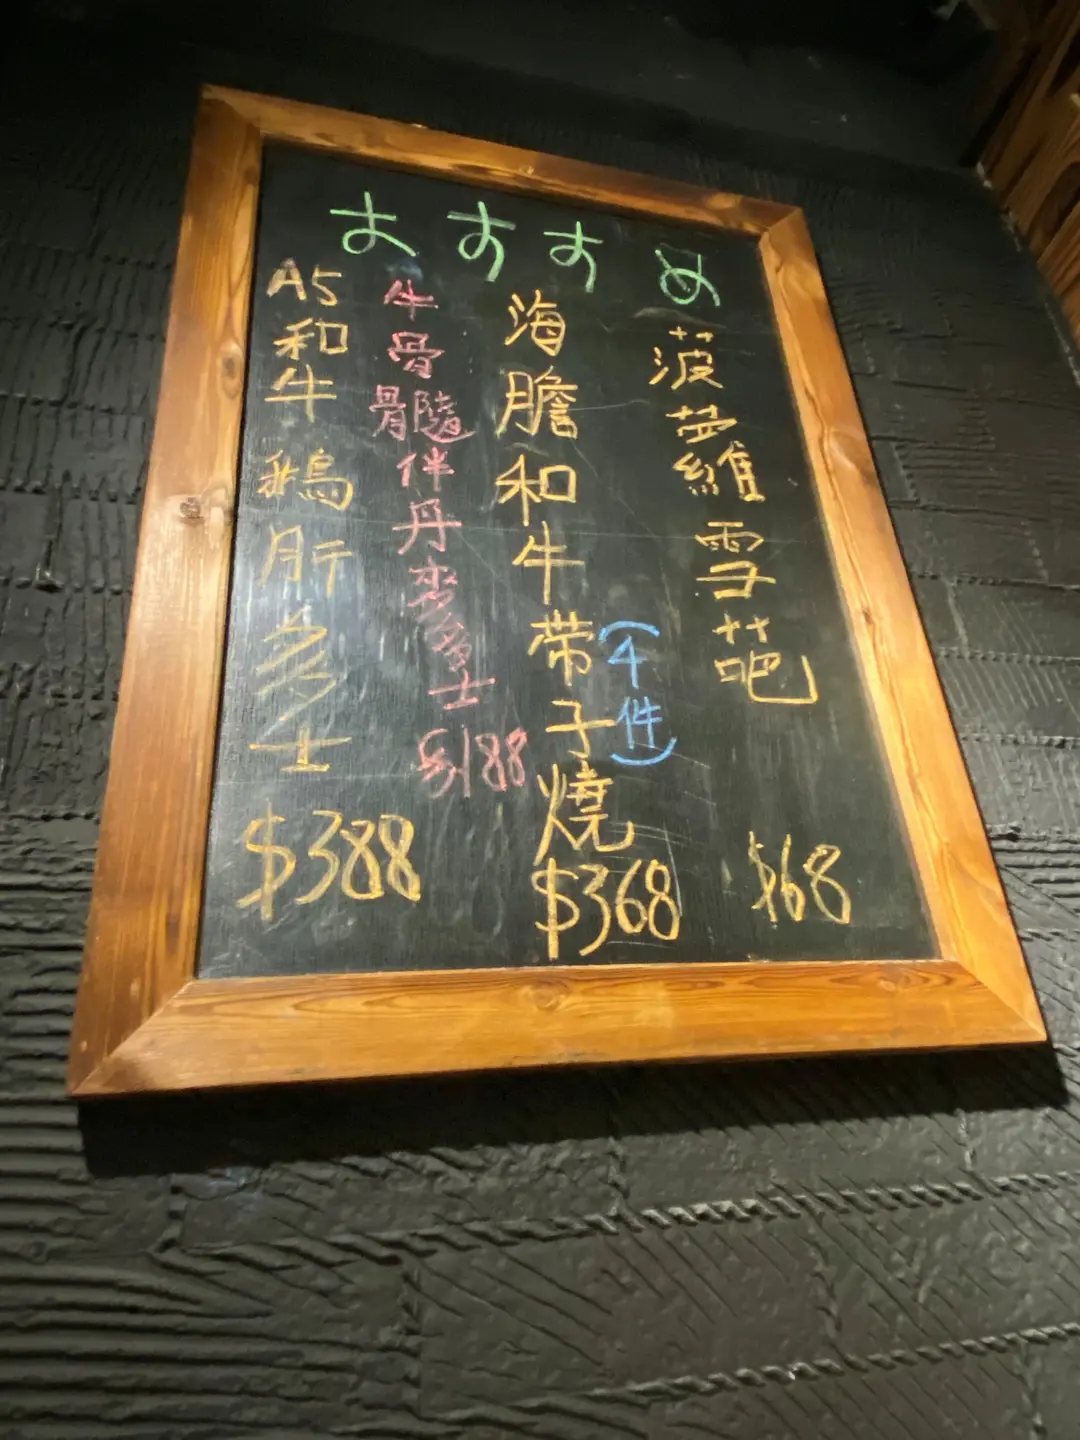 おすすめ
A5和牛鵝肝多士
$388
牛骨髓伴丹麥多士
$188
海膽和牛帶子燒
(4件)
$368
菠蘿雪葩
$68